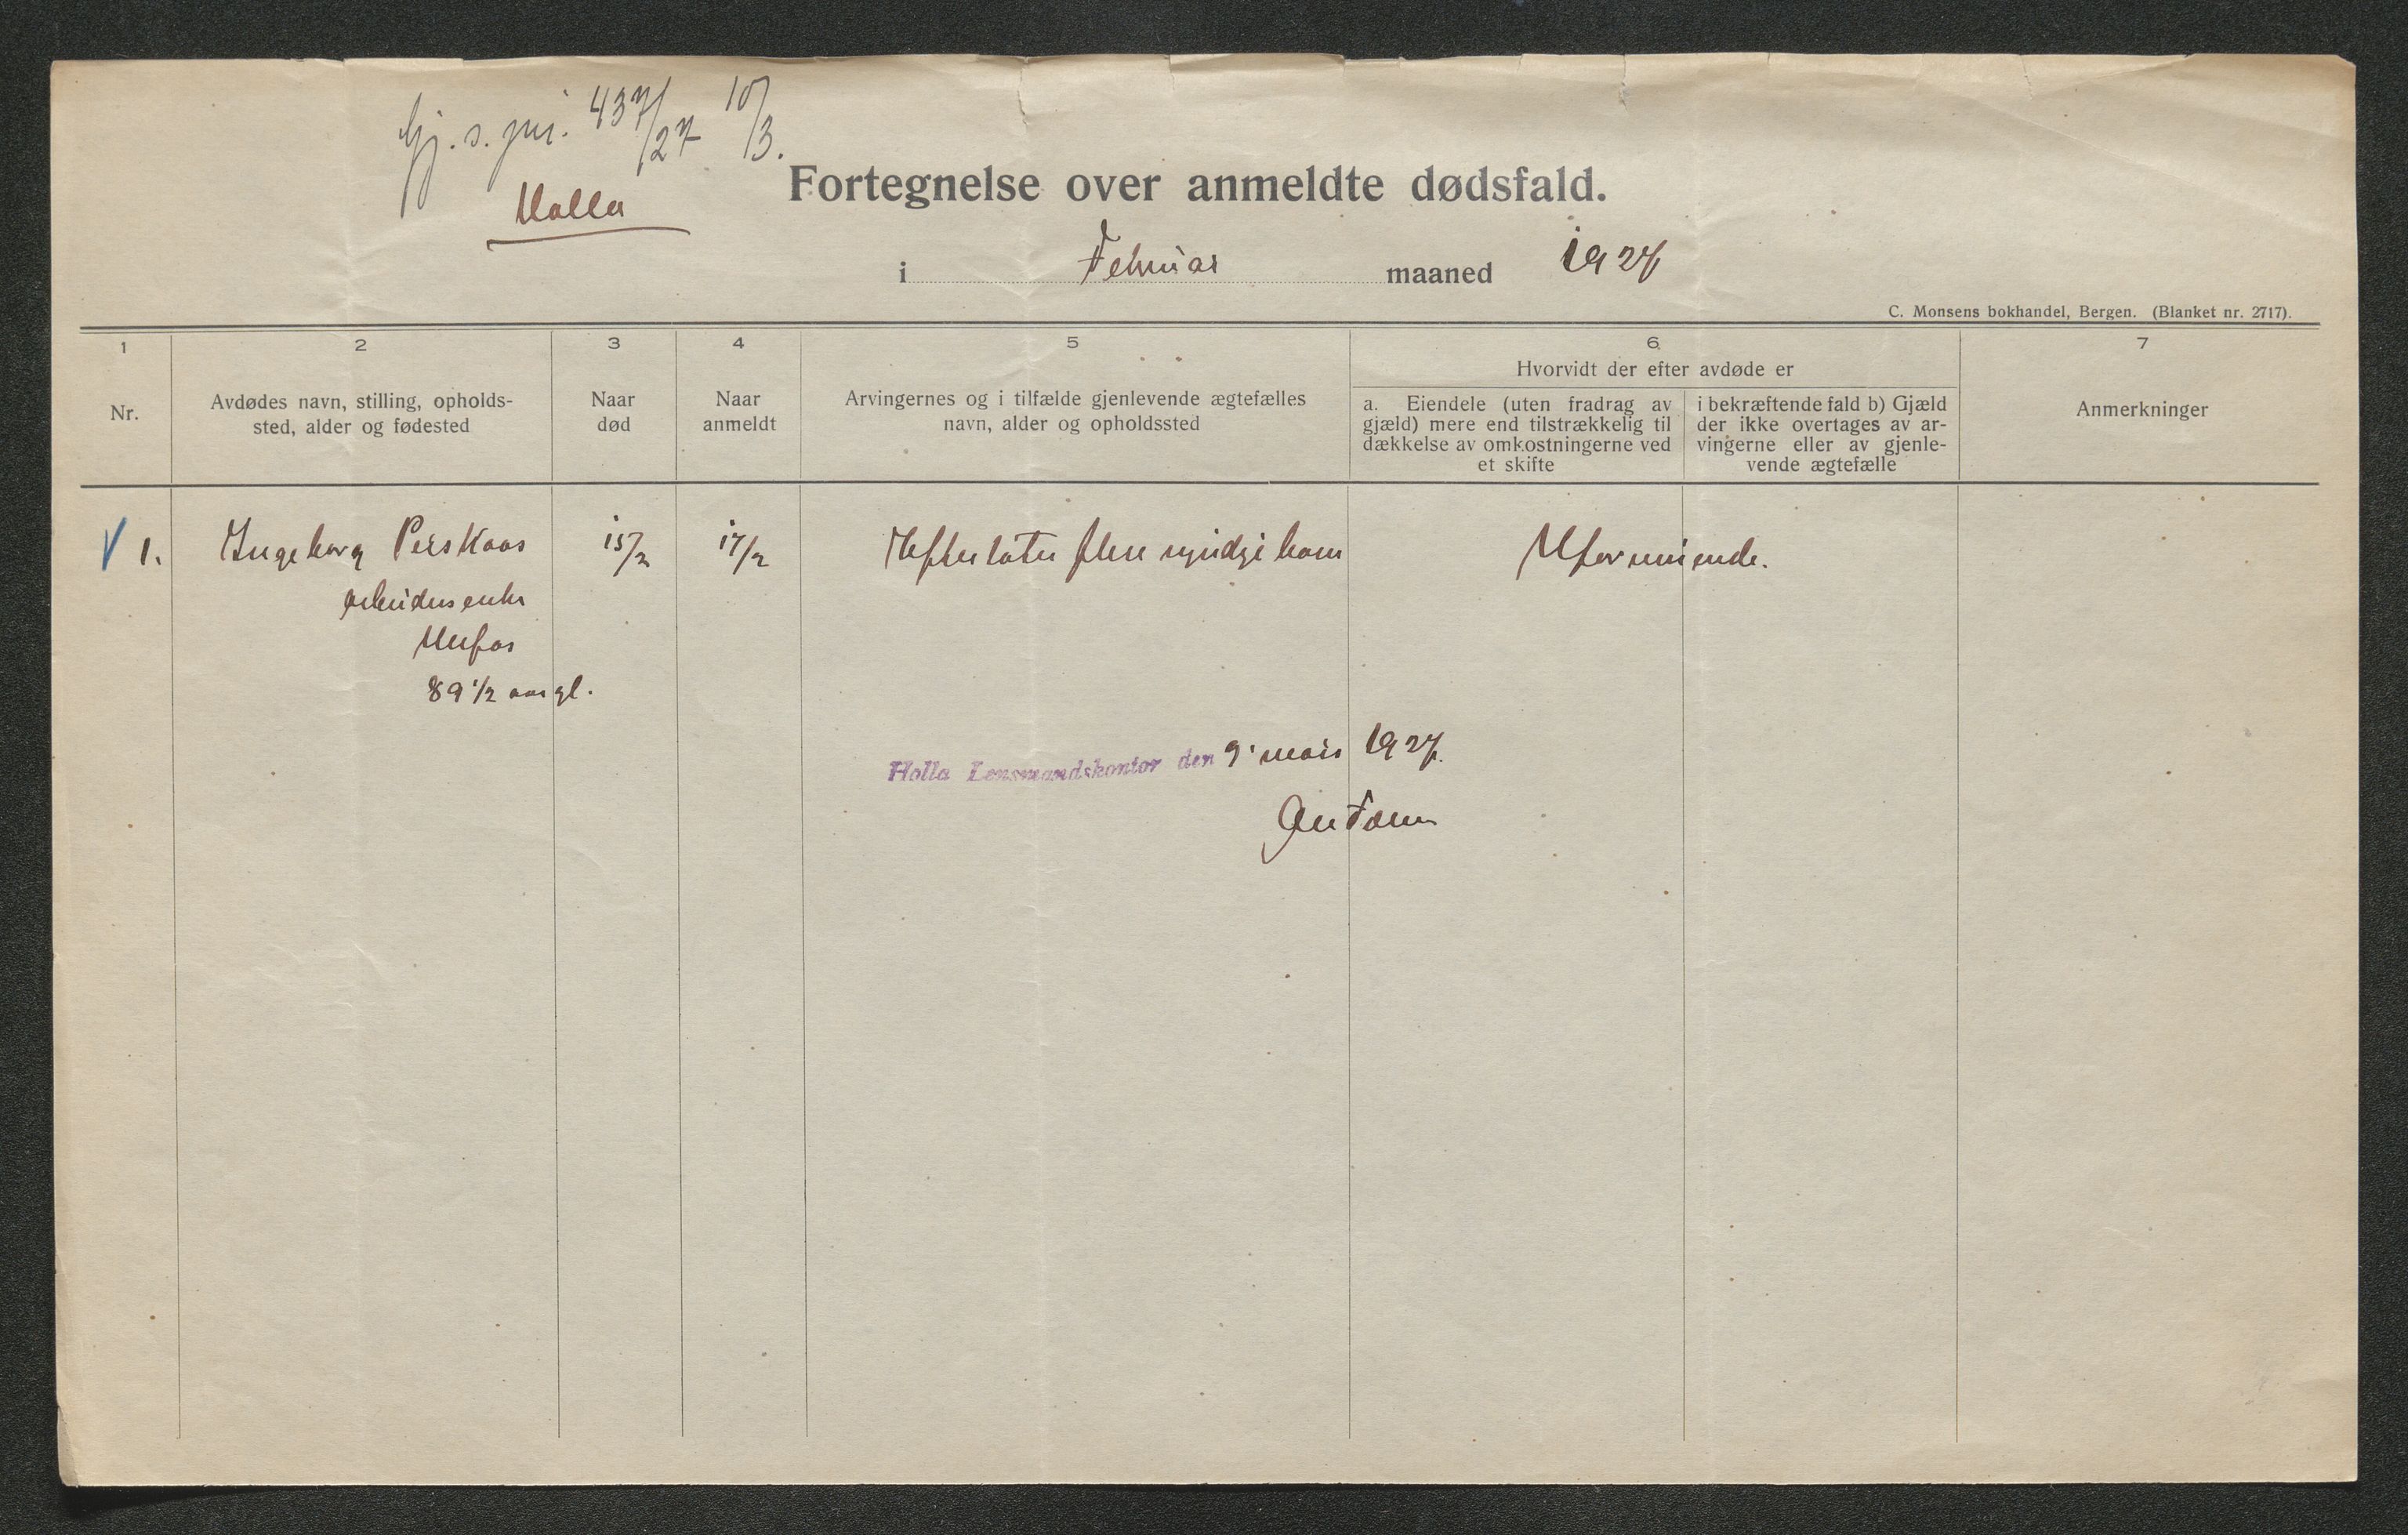 Gj. s. jnr. 437/27 10/3.
Holla
Fortegnelse over anmeldte dødsfald.
i Februar maaned 1927
C. Monsens bokhandel, Bergen. (Blanket nr. 2717).
1 2 3 4 5 6 7
Nr.
Avdødes navn, stilling, opholds-
sted, alder og fødested
Naar
død
Naar
anmeldt
Arvingernes og i tilfælde gjenlevende ægtefælles
navn, alder og opholdssted
Hvorvidt der efter avdøde er
a. Eiendele (uten fradrag av
gjæld) mere end tilstrækkelig til
dækkelse av omkostningerne ved
et skifte
i bekræftende fald b) Gjæld
der ikke overtages av ar-
vingerne eller av gjenle-
vende ægtefælle
Anmerkninger
V 1. Ingeborg Perskaas 15/2 17/2 Efterlater flere myndige barn Uformuende.
arbeidersenke
Ulefos
89 1/2 aar gl.
Holla Lensmandskontor den 9. mars 1927.